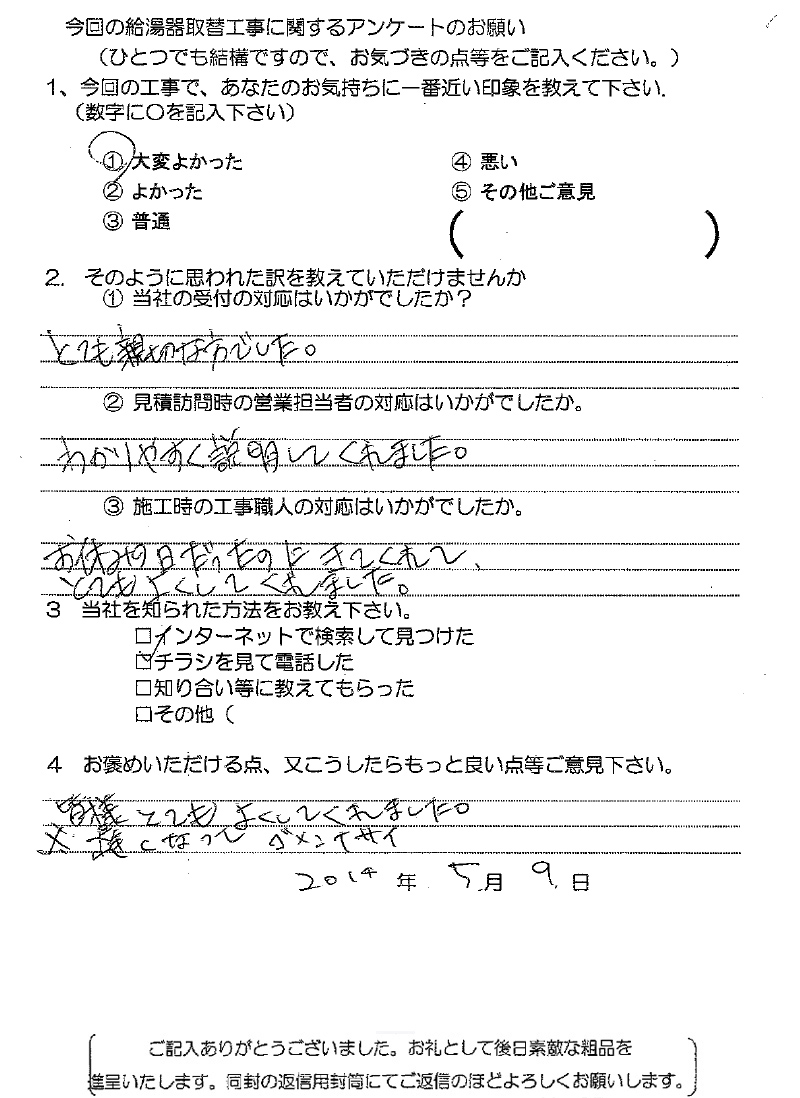 今回の給湯器取替工事に関するアンケートのお願い
（ひとつでも結構ですので、お気づきの点等をご記入ください。）
1、今回の工事で、あなたのお気持ちに一番近い印象を教えて下さい.
（数字に〇を記入下さい）
① 大変よかった
② よかった
③ 普通
④ 悪い
⑤ その他ご意見
（　　　）
2. そのように思われた訳を教えていただけませんか
① 当社の受付の対応はいかがでしたか？
とても親切な方でした。
② 見積訪問時の営業担当者の対応はいかがでしたか。
わかりやすく説明してくれました。
③ 施工時の工事職人の対応はいかがでしたか。
お休みの日だったのにきてくれて、
とてもよくしてくれました。
3 当社を知られた方法をお教え下さい。
□インターネットで検索して見つけた
☑チラシを見て電話した
□知り合い等に教えてもらった
□その他（
4 お褒めいただける点、又こうしたらもっと良い点等ご意見下さい。
皆様とてもよくしてくれました。
になって ゴメンナサイ
2014 年 5 月 9 日
ご記入ありがとうございました。お礼として後日素敵な粗品を
進呈いたします。同封の返信用封筒にてご返信のほどよろしくお願いします。